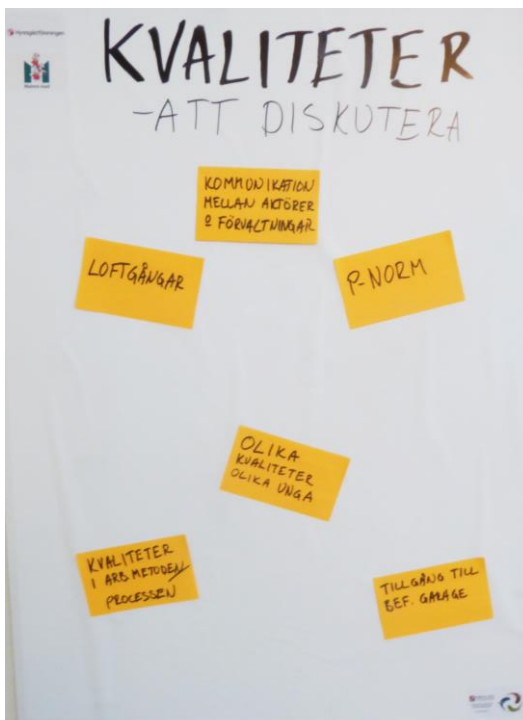 Hyresgästföreningen
KVALITETER
-ATT DISKUTERA
KOMMUNIKATION
MELLAN AKTÖRER
& FÖRVALTNINGAR
LOFTGÅNGAR
P-NORM
OLIKA
KVALITETER
OLIKA UNGA
KVALITETER
I ARB METODEN/
PROCESSEN
TILLGÅNG TILL
BEF. GARAGE